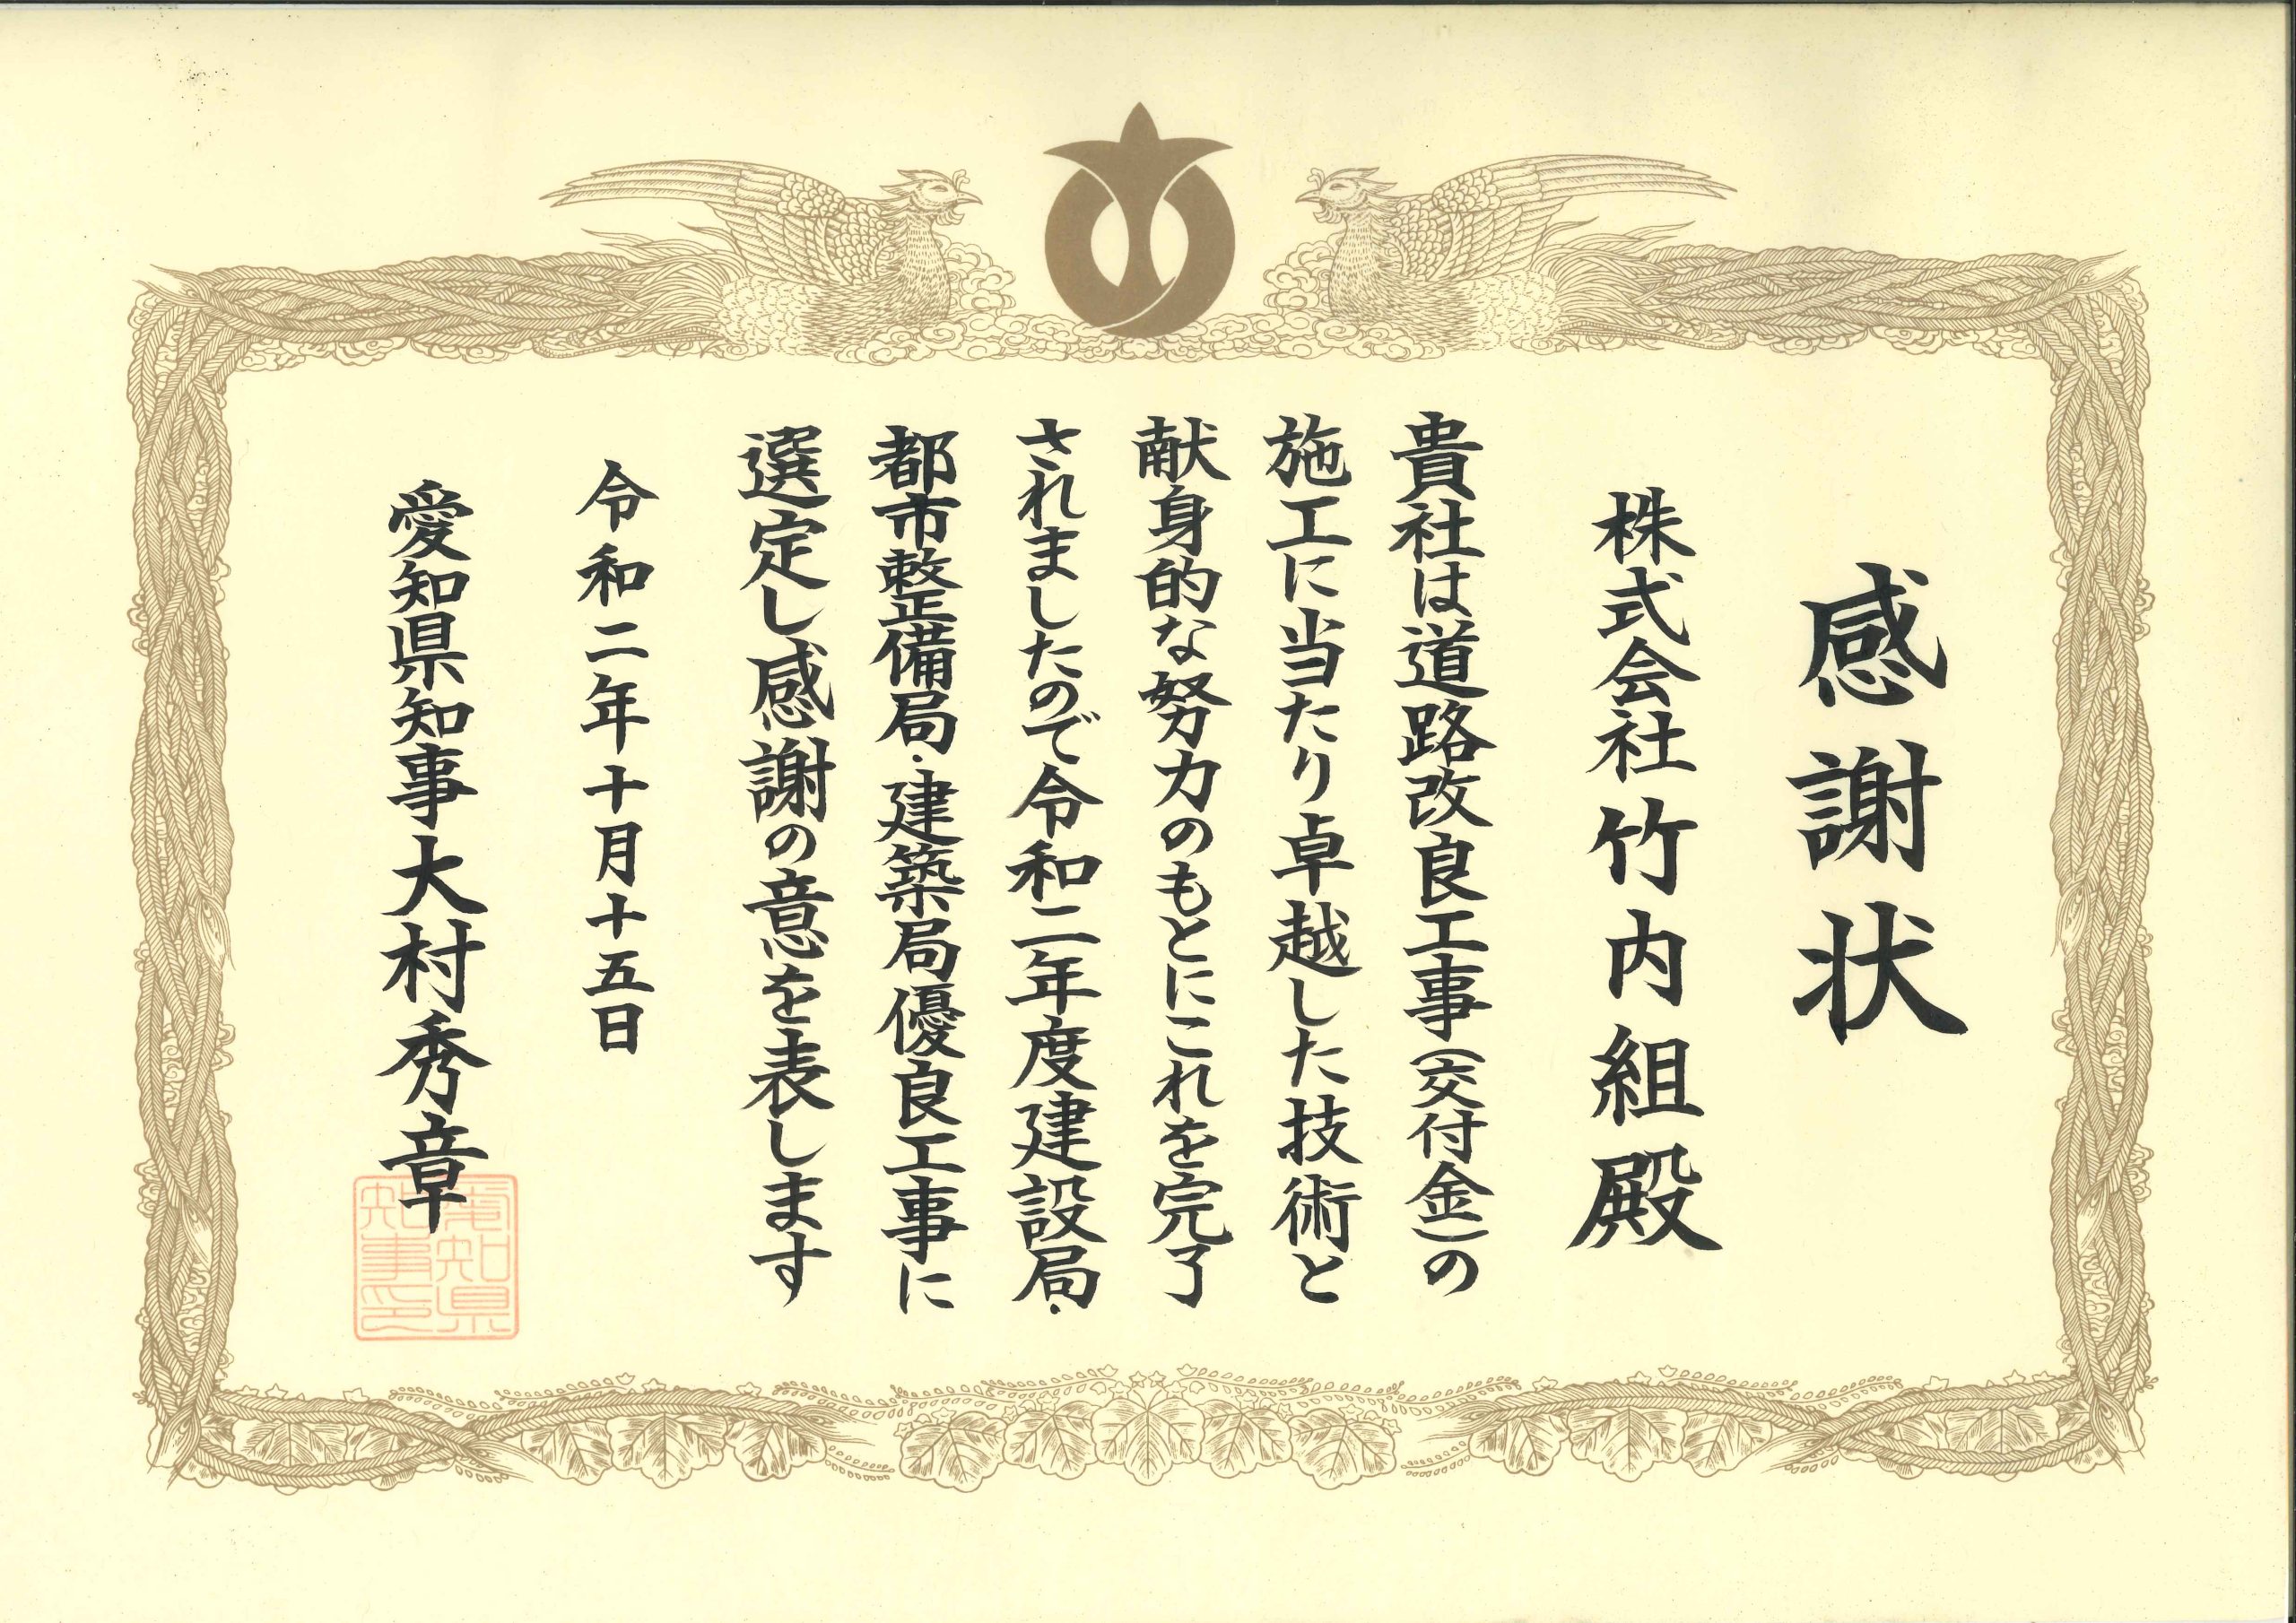 感謝状
株式会社竹内組殿
貴社は道路改良工事(交付金)の
施工に当たり卓越した技術と
献身的な努力のもとにこれを完了
されましたので令和二年度建設局・
都市整備局・建築局優良工事に
選定し感謝の意を表します
令和二年十月十五日
愛知県知事大村秀章
愛知県
知事印